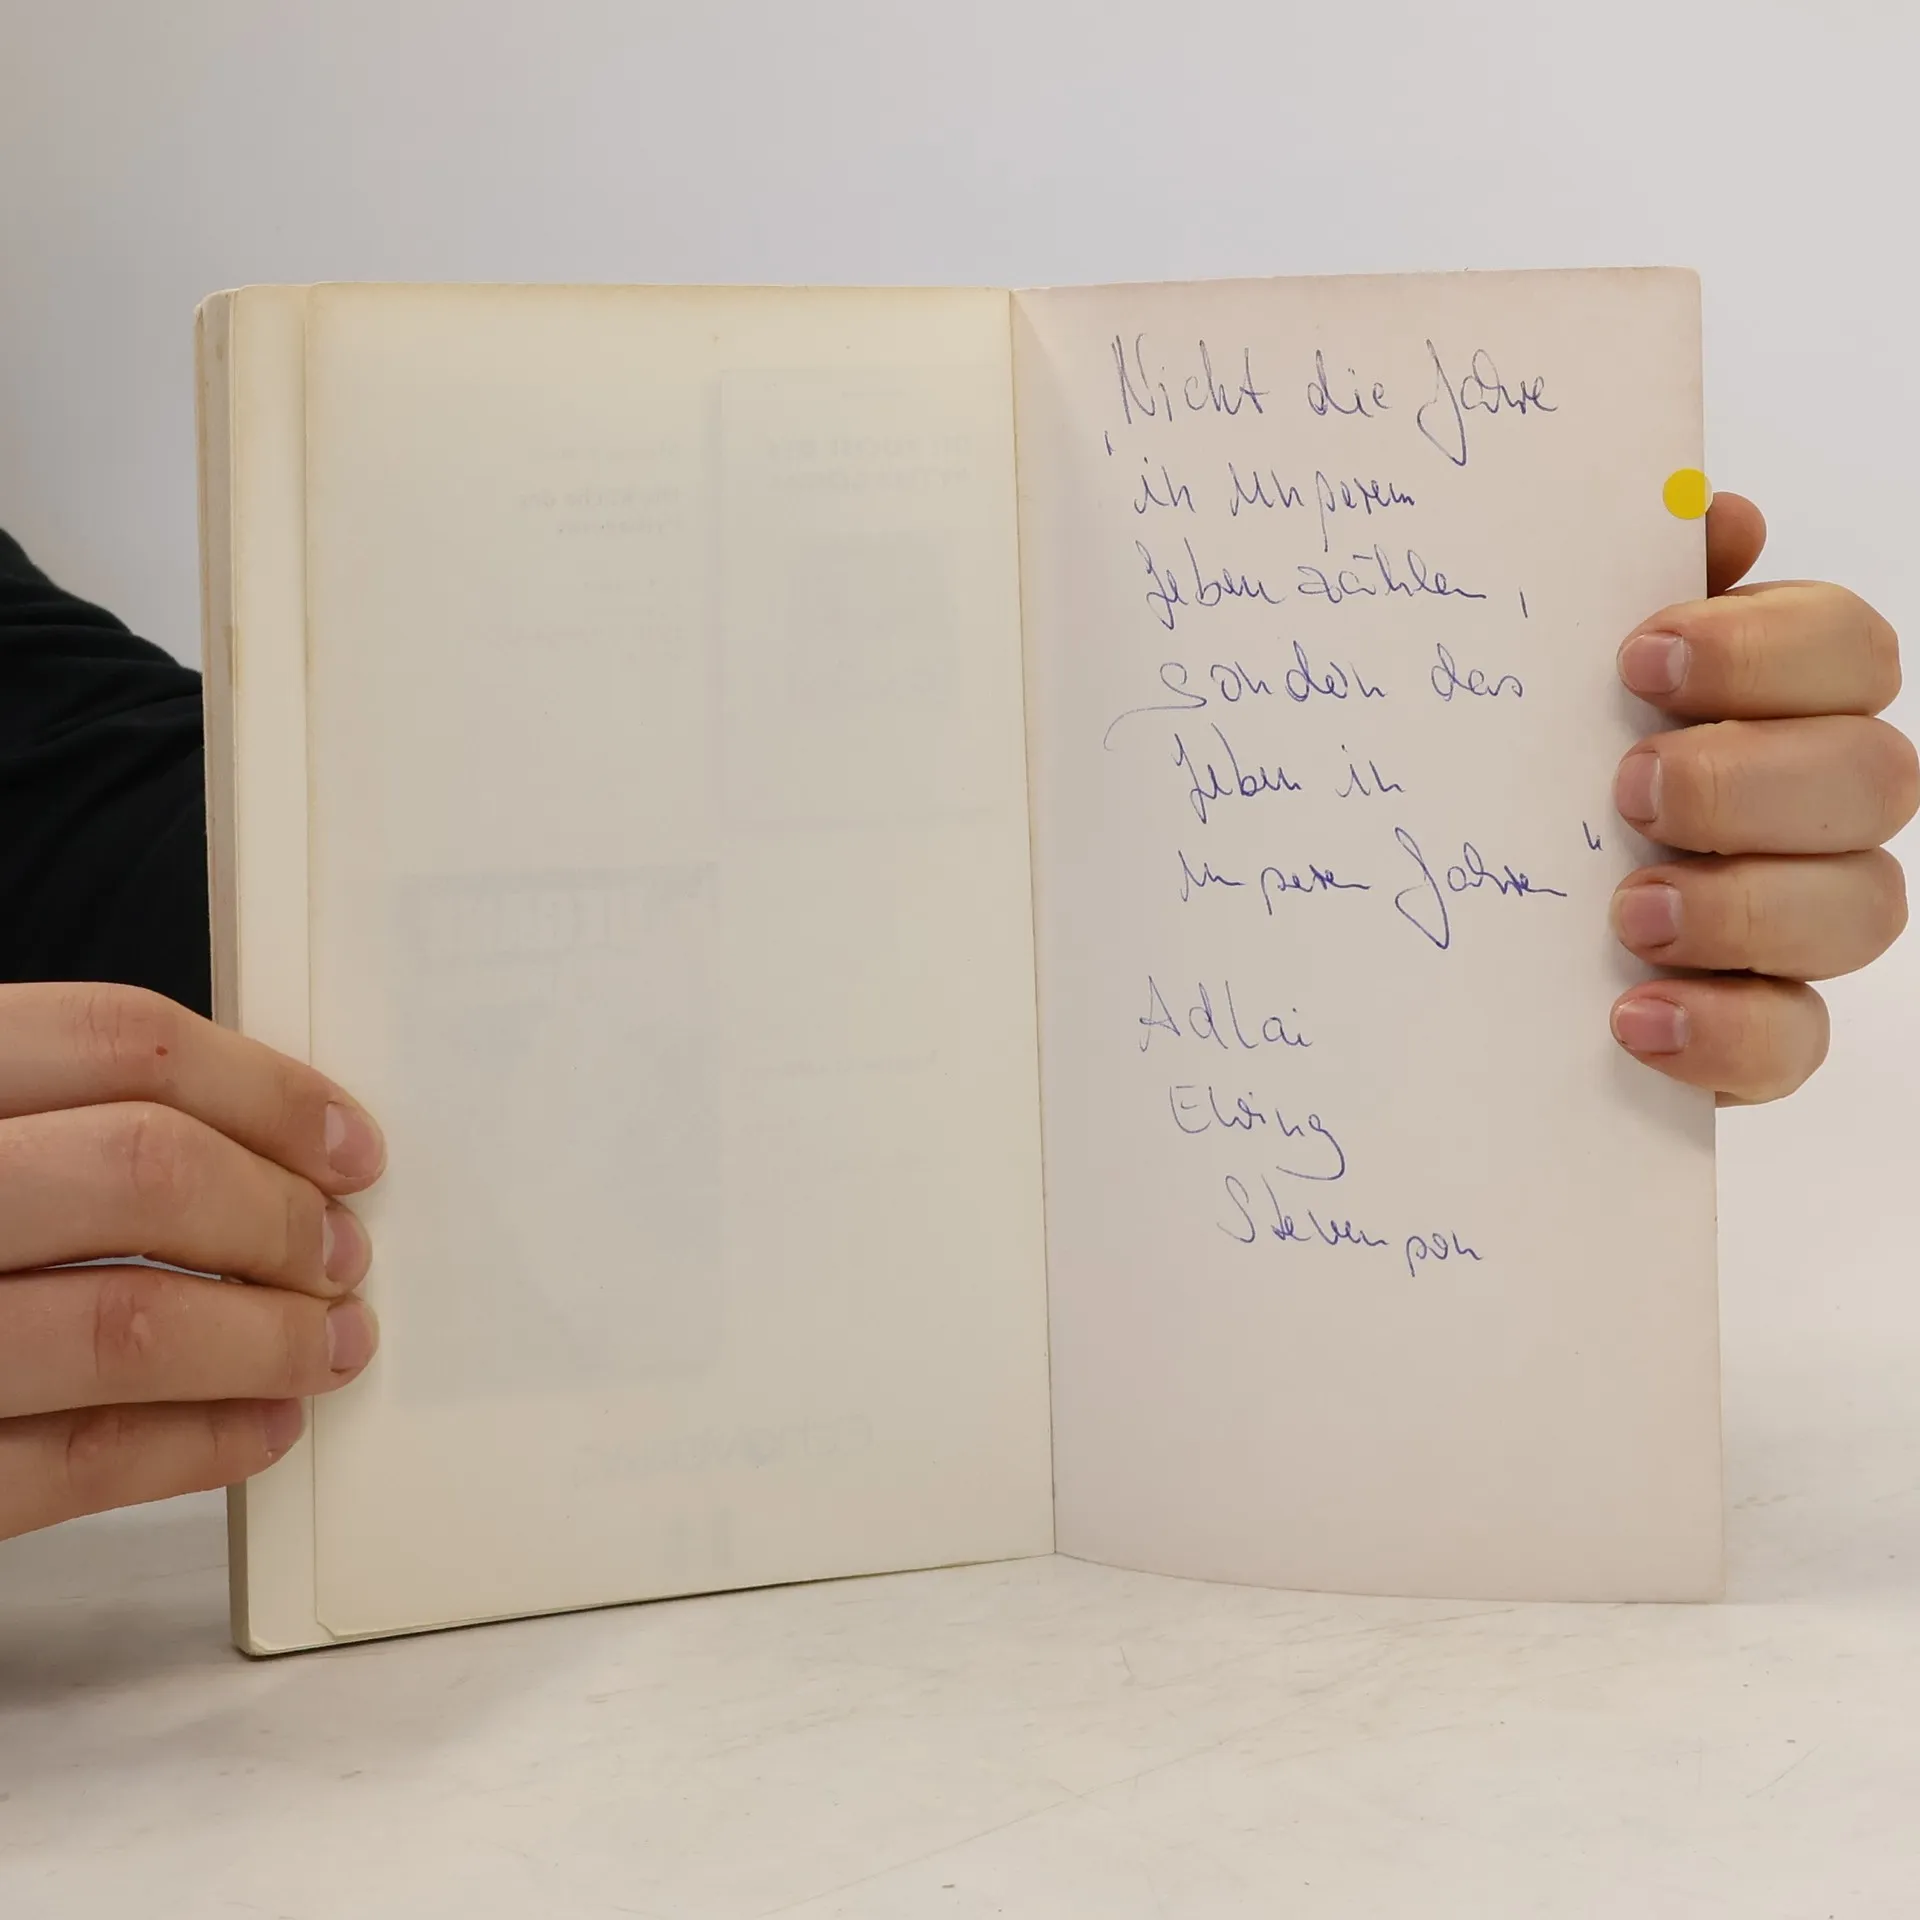 „Nicht die Jahre
in unserem
Leben zählen,
sondern das
Leben in
unseren Jahren“
Adlai
Ewing
Stevenson